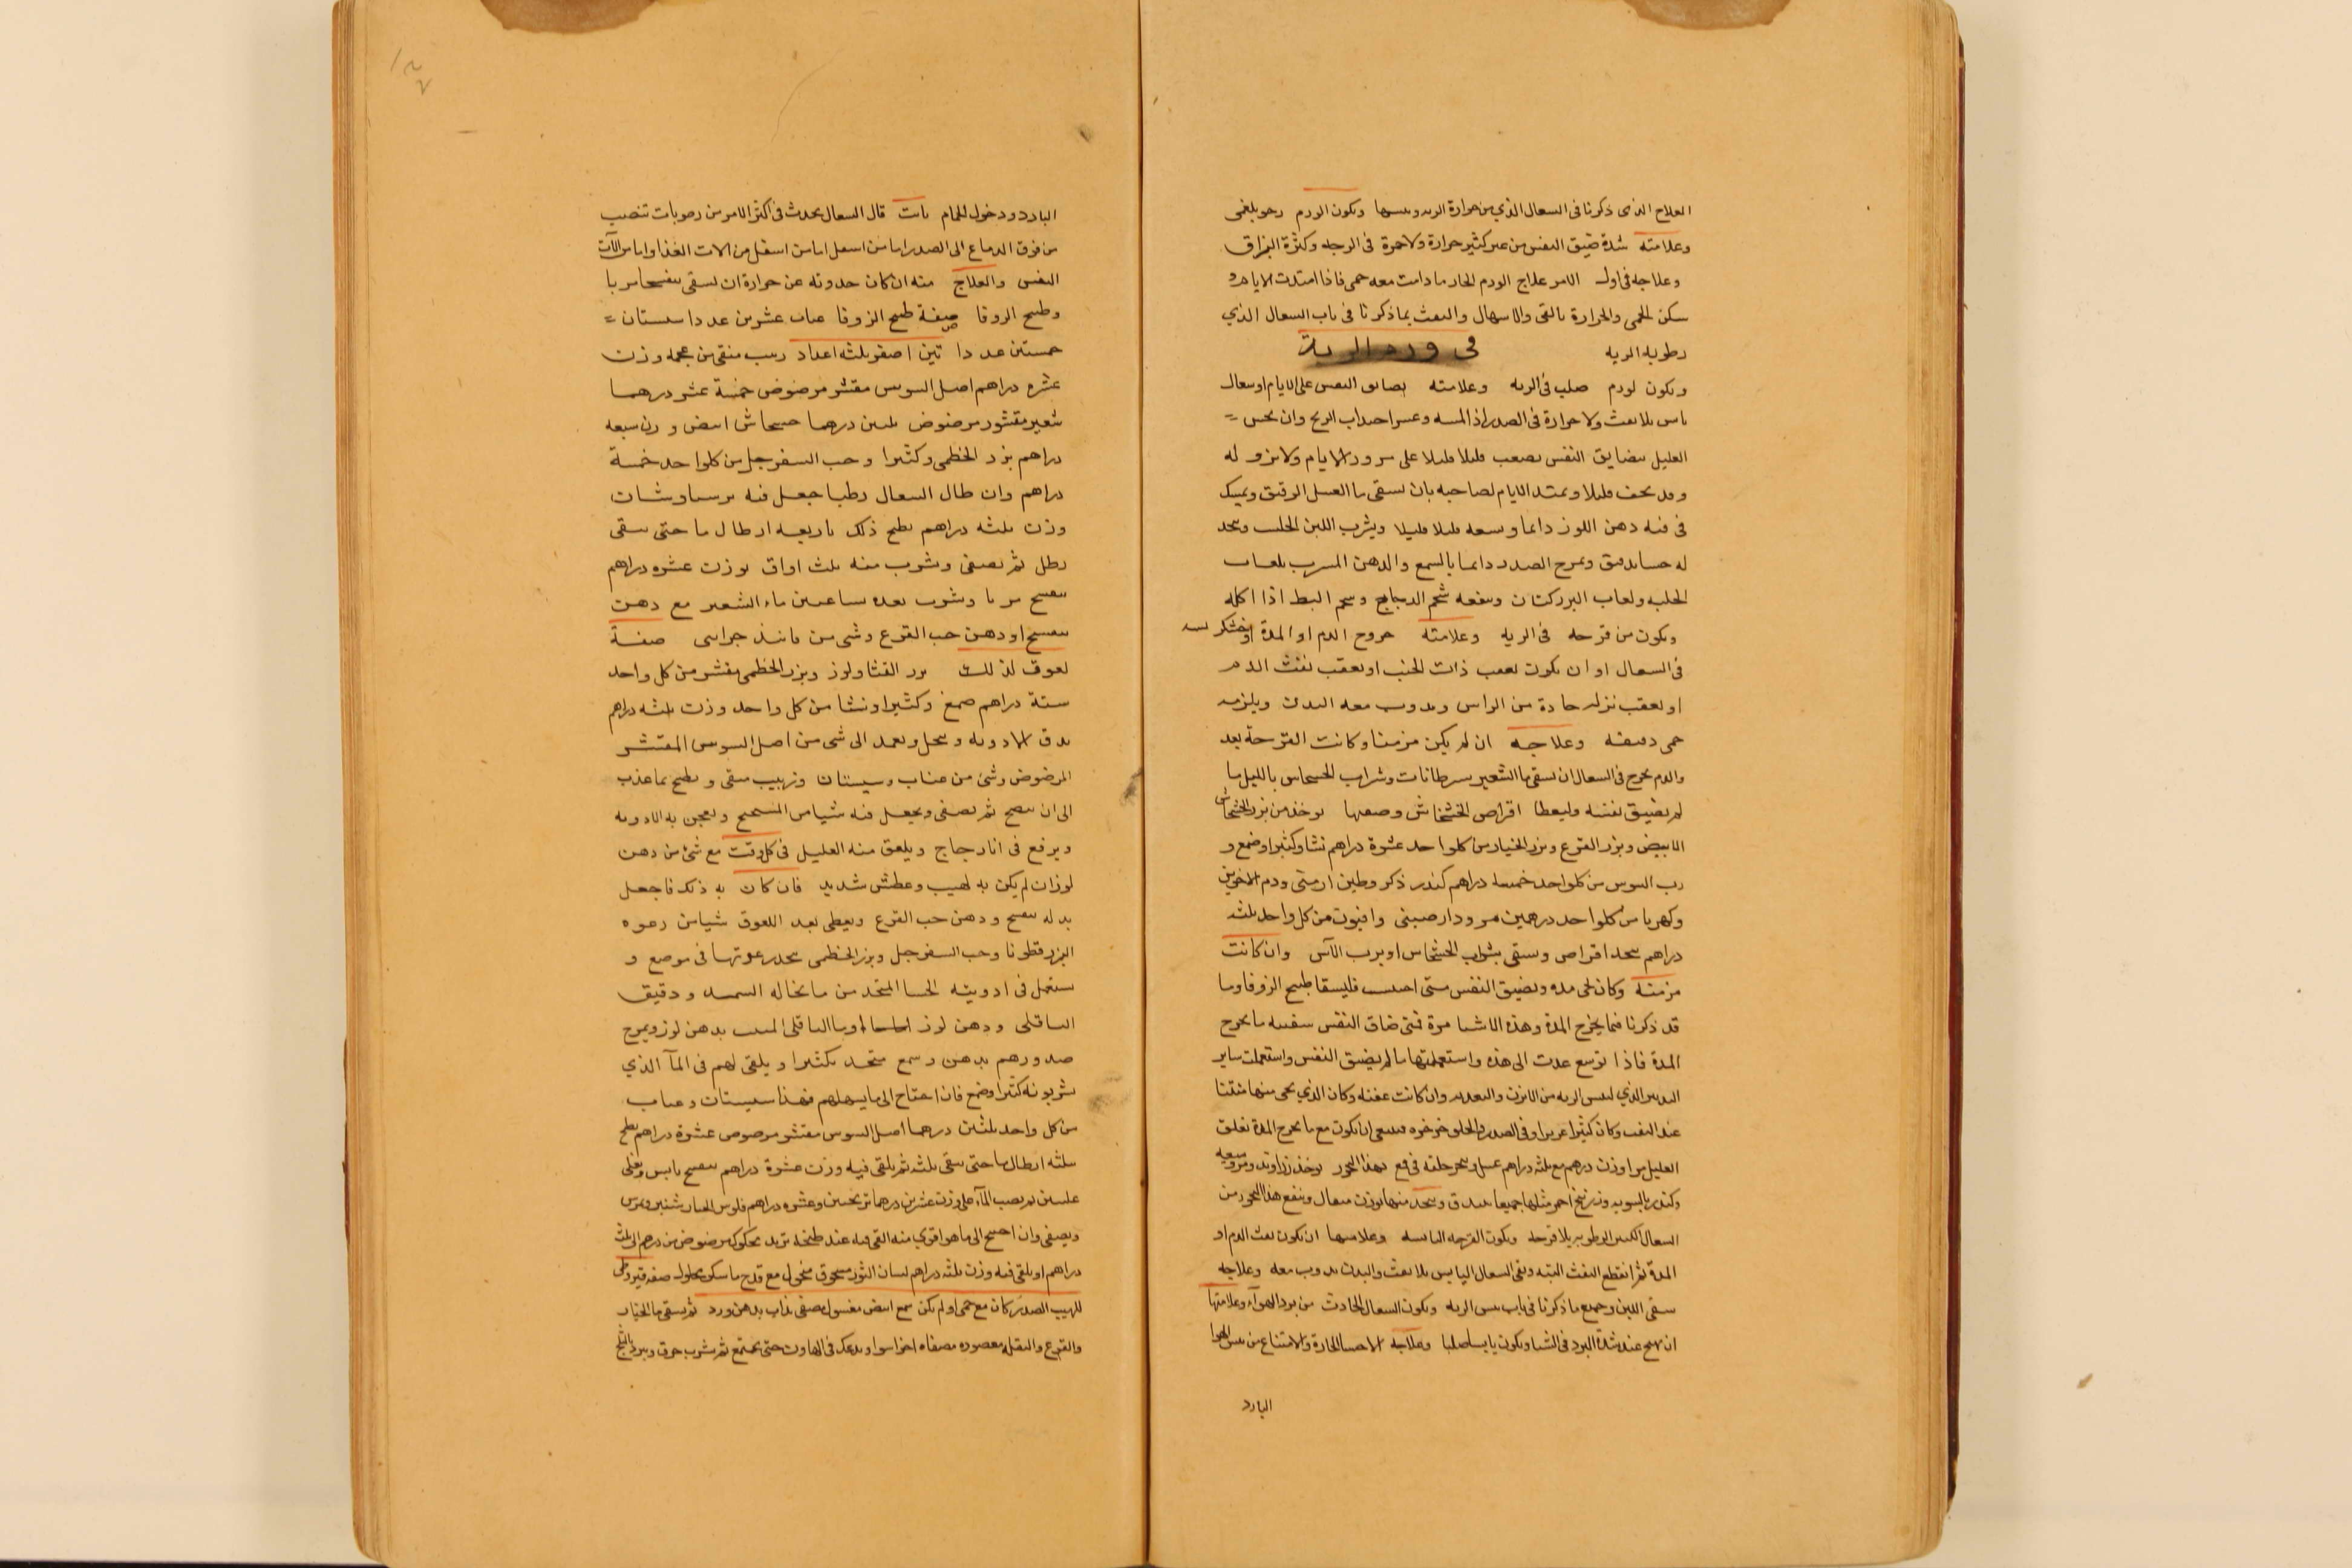 العلاج الذى ذكرنا فى السعال الذي من حرارة الريه ويبسها ويكون الورم رخو بلغمى
وعلامته شدة ضيق النفس من غير كثير حرارة ولا حمرة فى الوجه وكثرة البزاق
وعلاجه فى اول الامر علاج الورم الحار ما دامت معه حمى فاذا امتدت الايام و
سكن الحمى والحرارة بالقى والاسهال والنفث بما ذكرنا فى باب السعال الذي
رطوبة الريه فى ورم الرية
ويكون لورم صلب فى الريه وعلامته يضايق النفس على الايام او سعال
يابس بلا نفث ولا حرارة فى الصدر اذا لمسه وعسر اجتذاب الريح وان يحس
العليل بضايق النفس يصعب قليلا قليلا على مرور الايام ولا يزوله
وقد يخف قليلا ويمتد الايام لصاحبه بان يسقى ما العسل الرقيق ويمسك
فى فيه دهن اللوز دايما ويبلعه قليلا قليلا ويشرب اللبن الحلب ويتخذ
له حسا بدقيق ويمرخ الصدر دايما بالشمع والدهن المسرب بلعاب
الحلبه ولعاب البزر كتان وينفعه شحم الدجاج وشحم البط اذا اكله
ويكون من قرحه فى الريه وعلامته خروج الدم او المدة او خشكريسه
فى السعال او ان يكون بعقب ذات الجنب او بعقب نفث الدم
او بعقب نزله حادة من الراس ويذوب معه البدن ويلزمه
حمى دقيقه وعلاجه ان لم يكن مزمنا وكانت القرحة بعد
والدم يخرج فى السعال ان يسقى ما الشعير بسرطانات وشراب الخشخاش بالليل ما
لم يضيق نفسه وليعطا اقراص الخشخاش وصفتها يوخذ من بزر الخشخاش
الابيض وبزر القرع وبزر الخيار من كلواحد عشرة دراهم نشا وكثيرا وصمغ و
رب السوس من كلواحد خمسة دراهم كندر ذكر وطين ارمنى ودم الاخوين
وكهربا من كلواحد درهمين مرو دارصينى وافيون من كل واحد ثلثه
دراهم يتخذ اقراص ويسقى بشراب الخشخاش او برب الآس وان كانت
مزمنة وكان يجى مده ويضيق النفس متى احتبست فليسقا طبيخ الزوفا وما
قد ذكرنا فيما يخرج المدة وهذه الاشيا مرة فمتى ضاق النفس سقيته ما يخرج
المدة فاذا توسع عدت الى هذه واستعملتها ما لم يضيق النفس واستعملت ساير
التدبير الذي ليبس الريه من الابزن والتغديه وان كانت عفنه وكان الذي يجى منها منتنا
عند النفث وكان كثيرا غزيرا وفى الصدر والحلق خرخره فينبغى ان يكون مع ما يخرج المدة تعلق
العليل مرا وزن درهم مع ثلثه دراهم عسل ويبخر حلقه فى قمع بهذا البخور يوخذ زراوند ومرو وميعه
وكندر بالسويه وزرنيخ احمر مثلها جميعا يدق ويتخذ منها بوزن مثقال وينفع هذا البخور من
السعال الكاين الرطوبه بلا قرحه ويكون القرحه اليابسه وعلامتها ان يكون نفث الدم او
المدة ثم انقطع النفث البته وبقى السعال اليابس بلا نفث والبدن يذوب معه وعلاجه
سقى اللبن وجميع ما ذكرنا فى باب يبس الريه ويكون السعال الحادث من برد الهوآء وعلامتها
ان يهيج عند شدة البرد فى الشتا ويكون يابسا صلبا وعلاجه الاحسا الحارة والامتناع من نفس الهوا
البارد
البارد ودخول الحمام باب قال السعال يحدث فى اكثر الامر من رطوبات تنصب
من فوق الدماع الى الصدر اما من اسفل اما من اسفل من الات الغذا واما من الآت
النفس والعلاج منه ان كان حدوثه عن حرارة ان يسقى بنفسجا مربا
وطبيخ الزوفا صفة طبيخ الزوفا عناب عشرين عددا سبستان
خمسين عددا تين اصفر ثلثه اعداد زبيب منقى من عجمه وزن
عشره دراهم اصل السوس مقشر مرضوض خمسة عشر درهما
شعير مقشور مرضوض ثلثين درهما خشخاش ابيض وزن سبعه
دراهم بزر الخطمى وكثيرا وحب السفرجل من كلواحد خمسة
دراهم وان طال السعال رطبا جعل فيه برسياوشان
وزن ثلثه دراهم يطبخ ذلك باربعه ارطال ما حتى يبقى
رطل ثم يصفى ويشرب منه ثلث اواق بوزن عشره دراهم
بنفسج مربا ويشرب بعده بساعتين ماء الشعير مع دهن
بنفسج او دهن حب القرع وشى من فانيذ خراسى صفة
لعوق لذلك بزر القثا ولوز وبزر الخطمى مقشر من كل واحد
ستة دراهم صمغ وكثيرا ونشا من كل واحد وزن ثلثه دراهم
يدق الادويه وينخل ويعمد الى شى من اصل السوس المقشر
المرضوض وشى من عناب وسبستان وزبيب منقى ويطبخ بما عذب
الى ان ينضج ثم يصفى ويجعل فيه شيا من الميبختج ويعجن به الادويه
ويرفع فى انا زجاج ويلعق منه العليل فى كل وقت مع شى من دهن
لوز ان لم يكن به لهيب وعطش شديد فان كان به ذلك فاجعل
بدله بنفسج ودهن حب القرع ويعطى بعد اللعوق شيا من رغوه
البزر قطونا وحب السفرجل وبزر الخطمى يتخذ رغوتها فى موضع و
يستعمل فى ادويته الحسا المتخذ من ما نخاله السميد ودقيق
الباقلى ودهن لوز او ما الباقلى المبيت بدهن لوز ويمرخ
صدورهم بدهن وشمع متخذ بكثيرا ويلقى لهم فى المآ الذي
يشربونه كثيرا وصمغ فان احتاج الى ما يسهلهم فهذا سبستان وعناب
من كل واحد ثلثين درهما اصل السوس مقشر مرضوض عشرة دراهم يطبخ
بثلثه ارطال ما حتى يبقى ثلثه ثم يلقى فيه وزن عشرة دراهم بنفسج يابس ويغلى
غليتين ثم يصب المآء على وزن عشرين درهما ترنجبين وعشره دراهم فلوس الخيار شنبر ويمرس
ويصفى وان احتيج الى ما هو اقوى منه القى فيه عند طبخه تربد محكوك مرضوض من درهم الى ثلث
دراهم او يلقى فيه وزن ثلثه دراهم لسان الثور مسحوق منخول مع قدح ما سكر محلول صفه قيروطى
للهيب الصدر كان مع حمى او لم يكن شمع ابيض مغسول مصفى يذاب بدهن ورد ثم يسقى ما الخيار
والقرع والبقله معصوره مصفاه اجزا سوا ويدعك فى الهاون حتى يجتمع ثم يشرب خرق ويبرد بالثلج